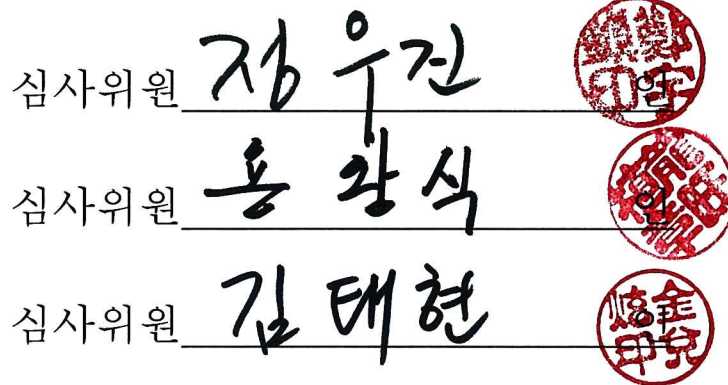 심사위원 정우진 인
심사위원 용환식 인
심사위원 김태현 인